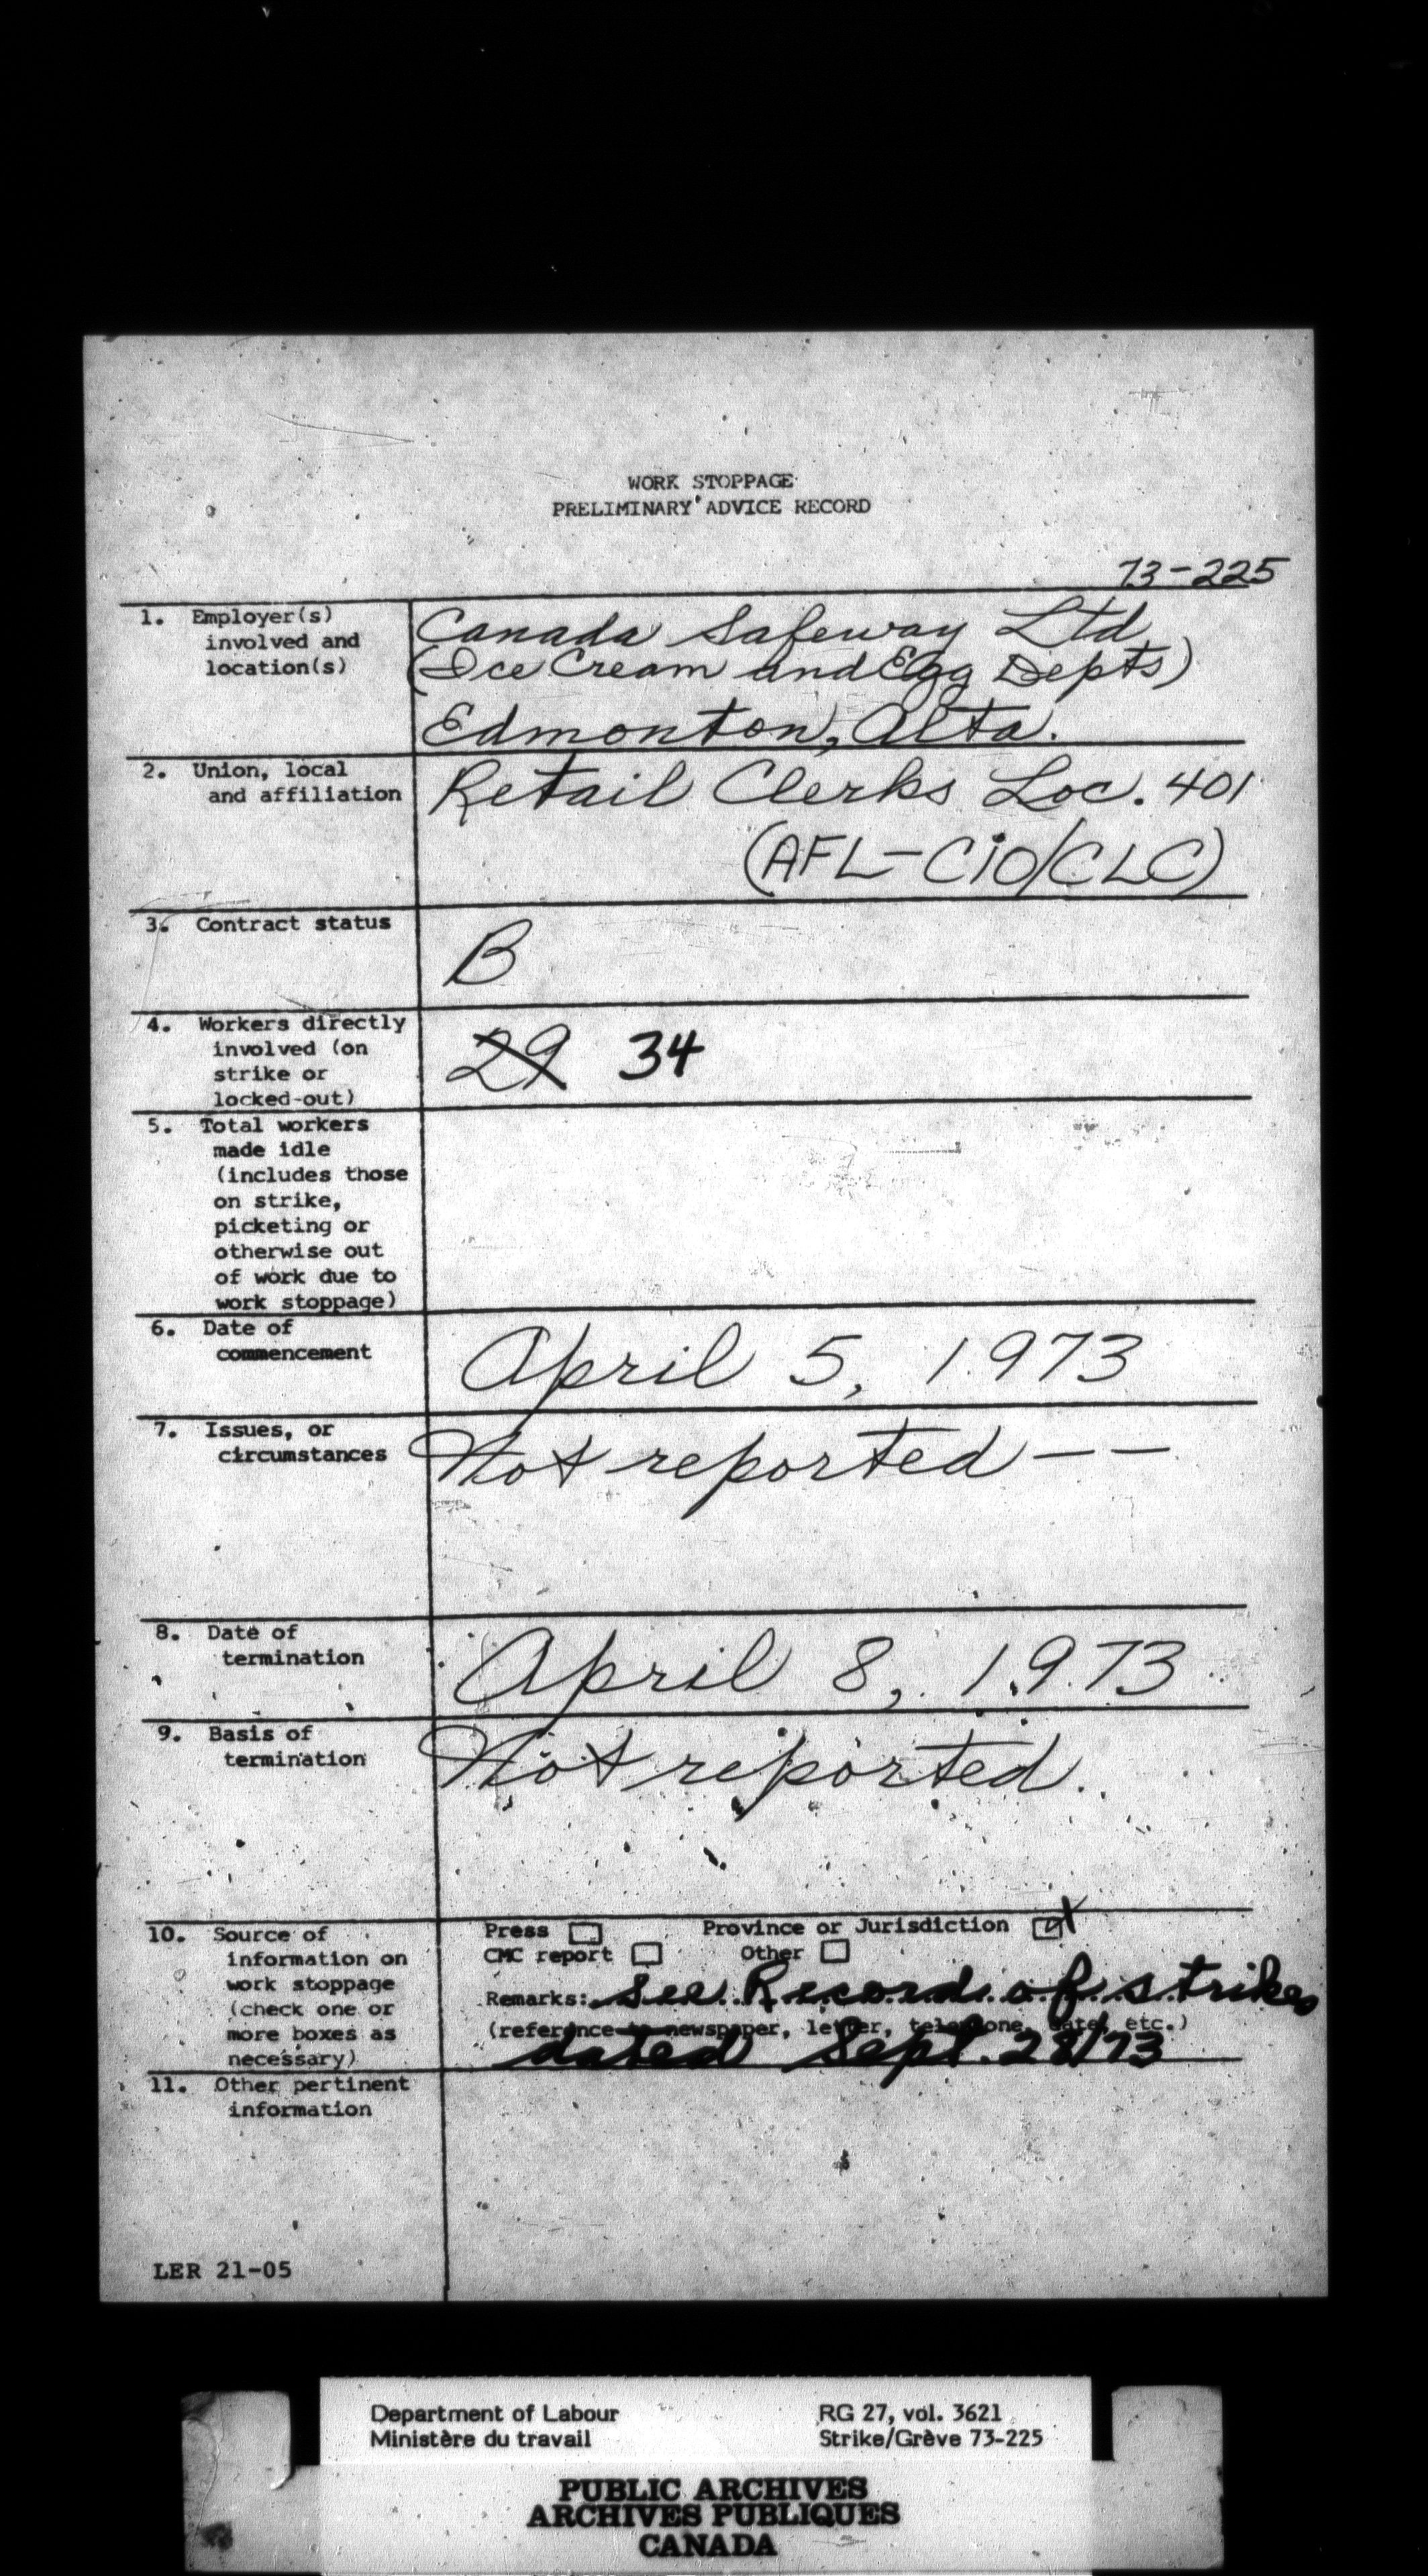 WORK STOPPAGE
PRELIMINARY ADVICE RECORD
73-225
1. Employer(s)
involved and
location(s)
Canada Safeway Ltd
(Ice Cream and Egg Depts)
Edmonton, Alta.
2. Union, local
and affiliation
Retail Clerks Loc. 401
(AFL-CIO/CLC)
3. Contract status
B
4. Workers directly
involved (on
strike or
locked-out)
29 34
5. Total workers
made idle
(includes those
on strike,
picketing or
otherwise out
of work due to
work stoppage)
6. Date of
commencement
April 5, 1973
7. Issues, or
circumstances
Not reported --
8. Date of
termination
April 8, 1973
9. Basis of
termination
Not reported.
10. Source of
information on
work stoppage
(check one or
more boxes as
necessary)
Press Province or Jurisdiction
CMC report Other
Remarks: See Record of strikes
(reference to newspaper, letter, telephone, date, etc.)
dated Sept. 28/73
11. Other pertinent
information
LER 21-05
Department of Labour RG 27, vol. 3621
Ministère du travail Strike/Grève 73-225
PUBLIC ARCHIVES
ARCHIVES PUBLIQUES
CANADA